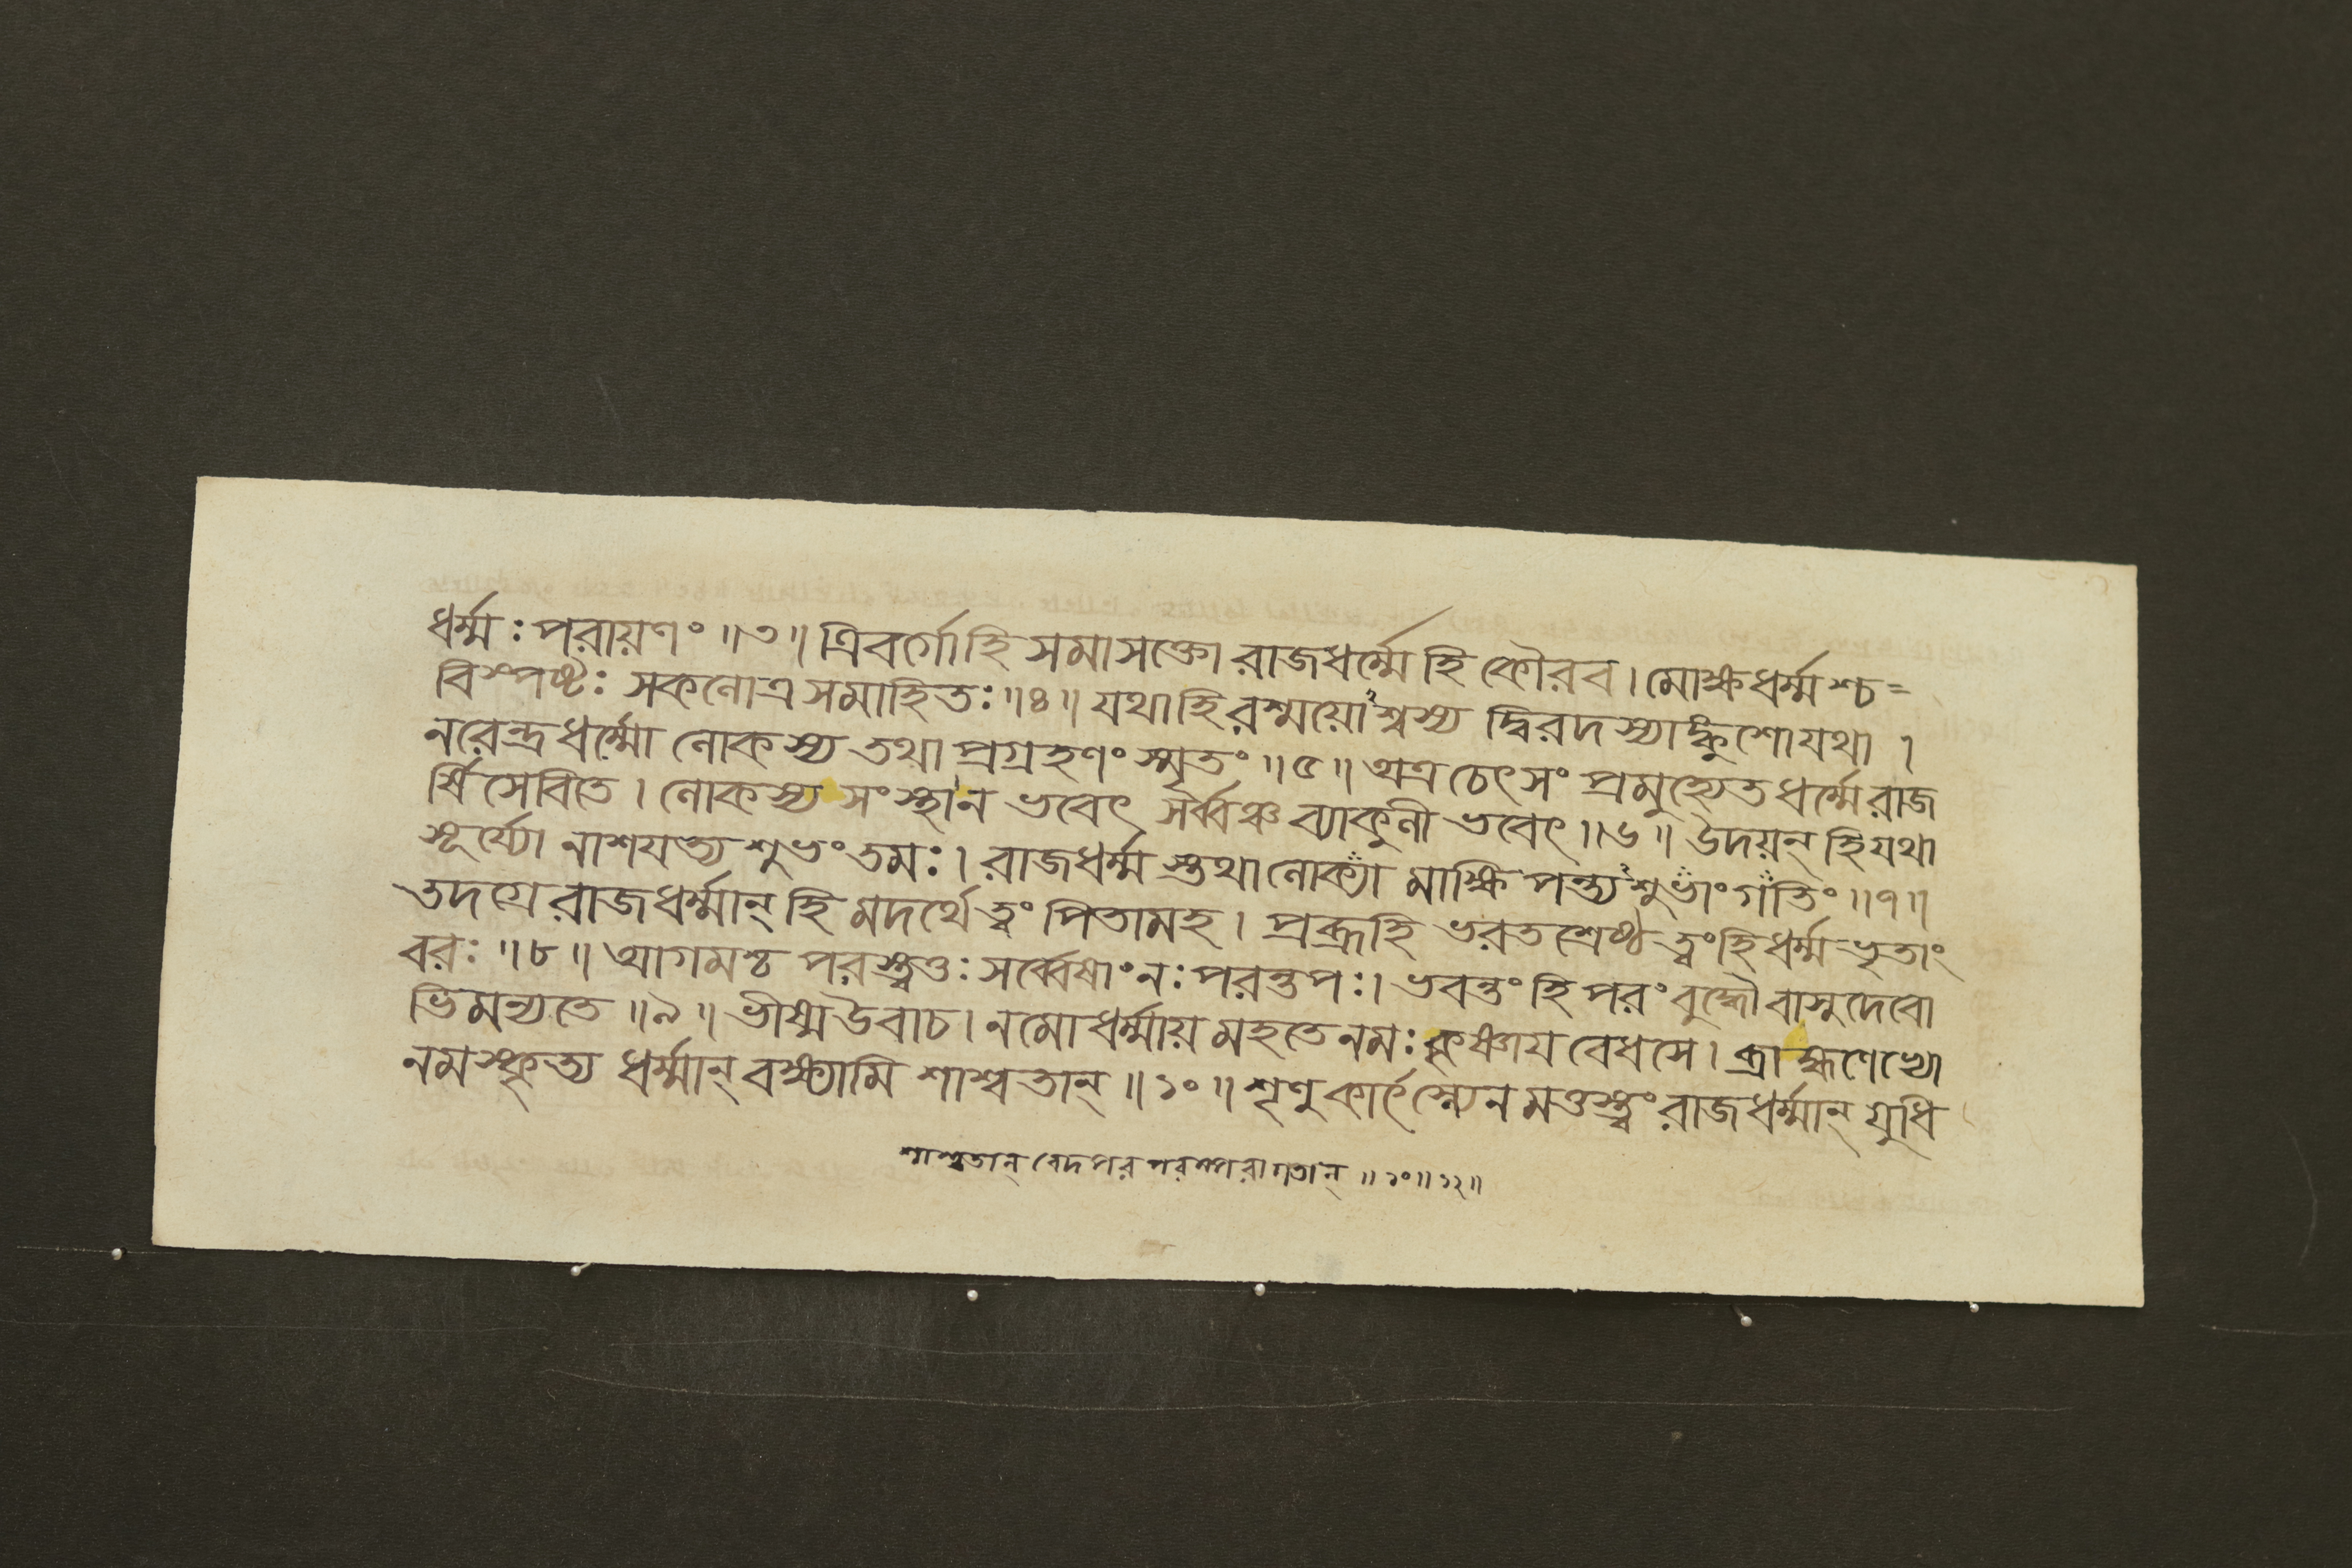 ধর্ম্মঃ পরায়ণং ॥৩॥ ত্রিবর্গো হি সমাসক্তো রাজধর্ম্মে হি কৌরব। মোক্ষধর্ম্মশ্চ=
বিস্পষ্টঃ সকলোত্র সমাহিতঃ ॥৪॥ যথা হি রশ্ময়োঽশ্বস্য দ্বিরদস্যাঙ্কুশো যথা ।
নরেন্দ্রধর্ম্মো লোকস্য তথা প্রগ্রহণং স্মৃতং ॥৫॥ অত্র চেৎ সংপ্রমুহ্যেত ধর্ম্মে রাজ
র্ষিসেবিতে। লোকস্য সংস্থা ন ভবেৎ সর্ব্বঞ্চ ব্যাকুলী ভবেৎ ॥৬॥ উদয়ন্ হি যথা
সূর্য্যো নাশযত্যশুভং তমঃ। রাজধর্ম্মস্তথা লোক্যা মাক্ষিপন্ত্যঽশুভাং গতিং ॥৭॥
তদগ্রে রাজধর্ম্মান্ হি মদর্থে ত্বং পিতামহ। প্রব্রূহি ভরতশ্রেষ্ঠ ত্বং হি ধর্ম্মভৃতাং
বরঃ ॥৮॥ আগমশ্চ পরস্ত্বত্তঃ সর্ব্বেষাং নঃ পরন্তপঃ। ভবন্তং হি পরং বুদ্ধৌ বাসুদেবো
ভিমন্যতে ॥৯॥ ভীষ্ম উবাচ। নমো ধর্ম্মায় মহতে নমঃ কৃষ্ণায বেধসে। ব্রাহ্মণেভ্যো
নমস্কৃত্য ধর্ম্মান্ বক্ষ্যামি শাশ্বতান্ ॥১০॥ শৃণু কার্ৎস্ন্যেন মত্তস্ত্বং রাজধর্ম্মান্ যুধি
শাশ্বতান্ বেদপর পরম্পরাগতান্ ॥১০॥১২॥